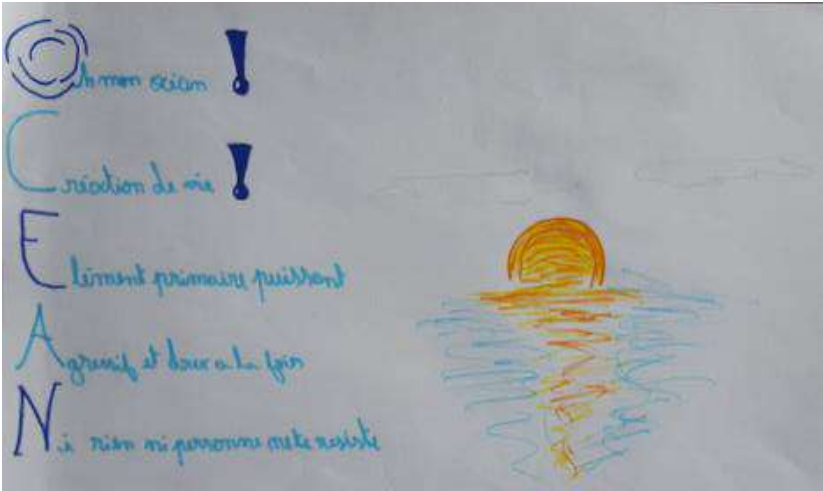 Oh mon océan !
Création de vie !
Elément primaire puissant
Agressif et doux a la fois
Ni rien ni personne ne te resiste